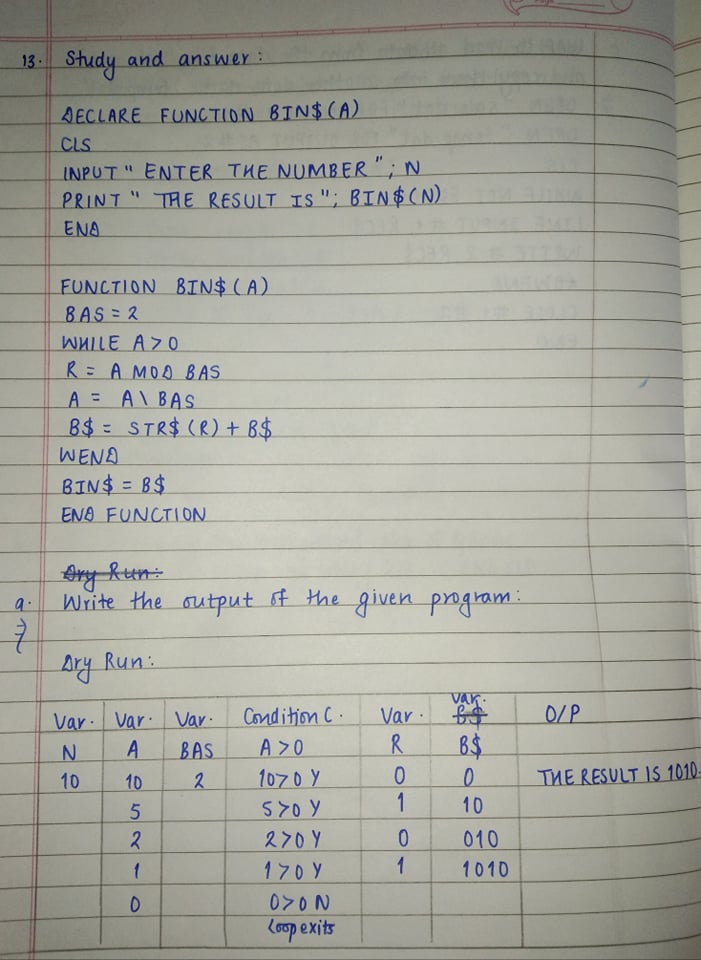 13. Study and answer:
DECLARE FUNCTION BIN$(A)
CLS
INPUT " ENTER THE NUMBER "; N
PRINT " THE RESULT IS "; BIN$(N)
END
FUNCTION BIN$(A)
BAS = 2
WHILE A > 0
R = A MOD BAS
A = A \ BAS
B$ = STR$(R) + B$
WEND
BIN$ = B$
END FUNCTION
Dry Run:
a. Write the output of the given program:
Dry Run:
Var. Var. Var. Condition C. Var. Var. B$ O/P
N A BAS A>0 R B$
10 10 2 10>0 Y 0 0 THE RESULT IS 1010.
5 5>0 Y 1 10
2 2>0 Y 0 010
1 1>0 Y 1 1010
0 0>0 N
Loop exits